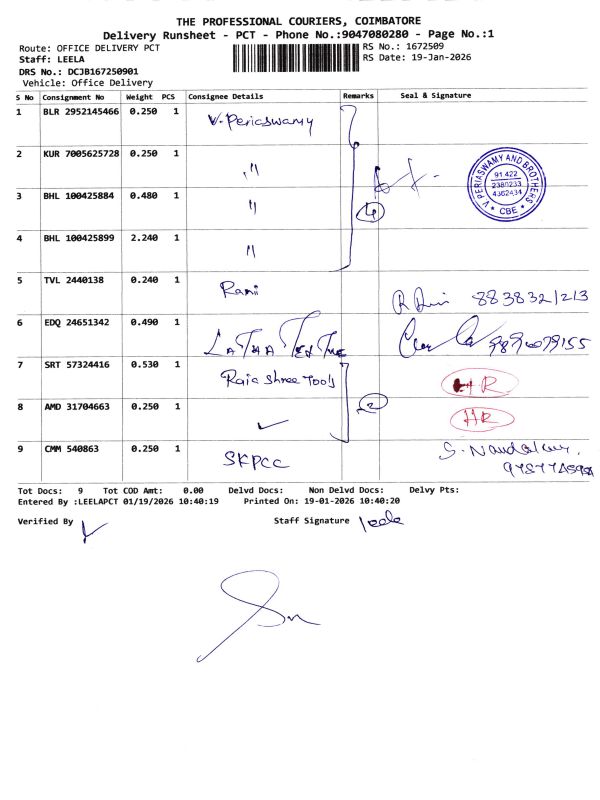 THE PROFESSIONAL COURIERS, COIMBATORE
Delivery Runsheet - PCT - Phone No.:9047080280 - Page No.:1
Route: OFFICE DELIVERY PCT
RS No.: 1672509
Staff: LEELA
RS Date: 19-Jan-2026
DRS No.: DCJB167250901
Vehicle: Office Delivery
S No Consignment No Weight PCS Consignee Details Remarks Seal & Signature
1 BLR 2952145466 0.250 1 V. Periaswamy
2 KUR 7005625728 0.250 1 "
3 BHL 100425884 0.480 1 " 4
V. PERIASWAMY AND BROTHERS
91 422
2380233
4362434
* CBE *
4 BHL 100425899 2.240 1 "
5 TVL 2440138 0.240 1 Rani 8838321213
6 EDQ 24651342 0.490 1 LATHA
7 SRT 57324416 0.530 1 Raja Shree Tools HR
8 AMD 31704663 0.250 1 ✓ 2 HR
9 CMM 540863 0.250 1 SKPCC
Tot Docs: 9 Tot COD Amt: 0.00 Delvd Docs: Non Delvd Docs: Delvy Pts:
Entered By :LEELAPCT 01/19/2026 10:40:19 Printed On: 19-01-2026 10:40:20
Verified By
Staff Signature leela